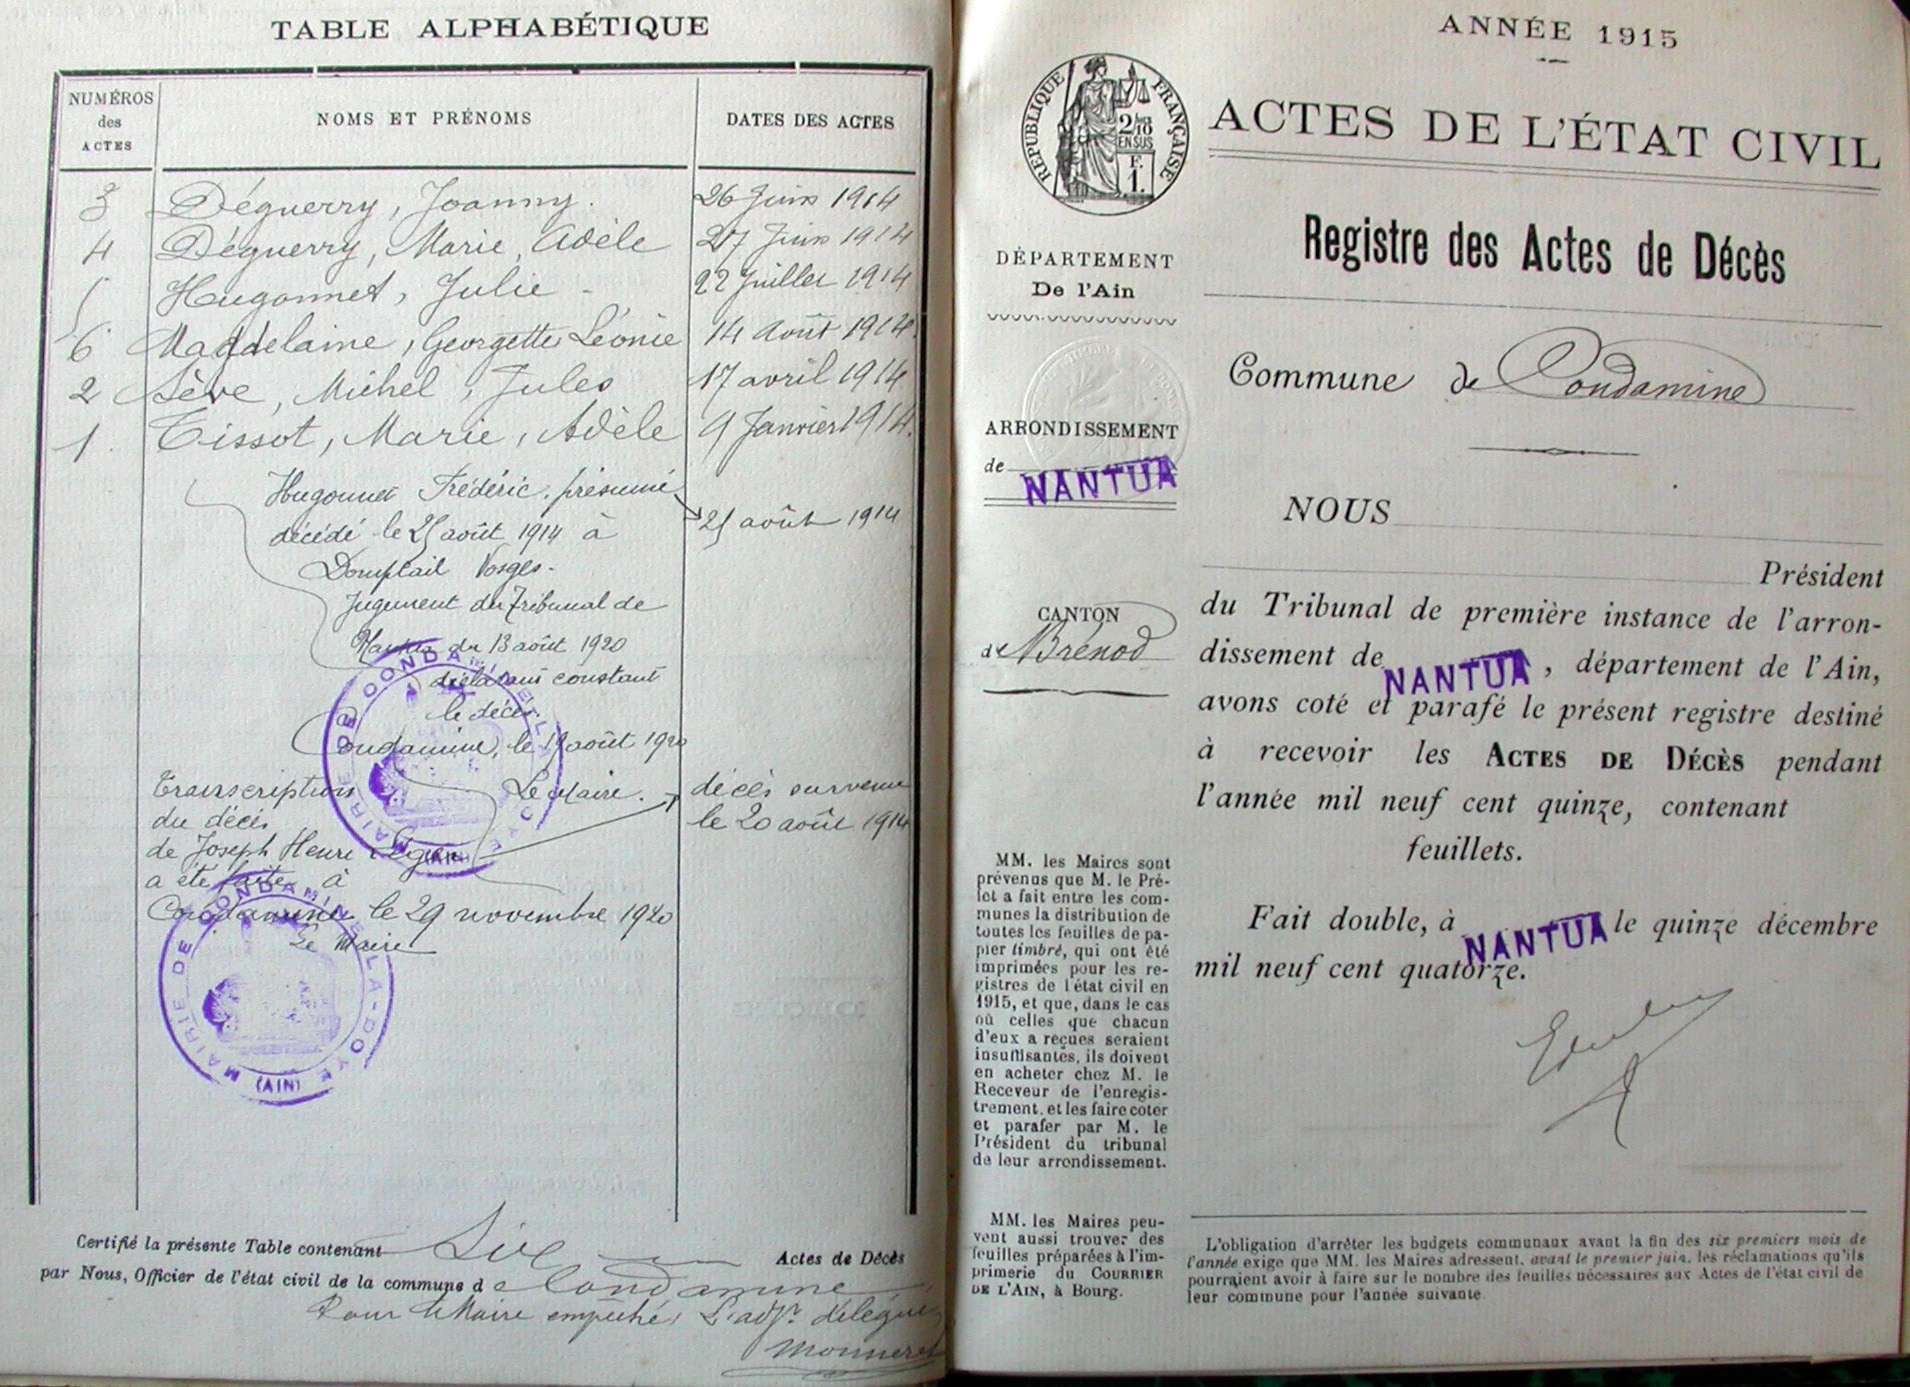 TABLE ALPHABÉTIQUE
NUMÉROS des ACTES
NOMS ET PRÉNOMS
DATES DES ACTES
3 Déguerry, Joanny. 26 Juin 1914
4 Déguerry, Marie, Adèle 27 Juin 1914
5 Hugonnet, Julie - 22 Juillet 1914
6 Magdelaine, Georgette Léonie 14 Août 1914.
2 Sève, Michel, Jules 17 avril 1914
1. Tissot, Marie, Adèle 9 Janvier 1914.
Hugonnet Frédéric, présumé
décédé le 25 août 1914 à 25 août 1914
Domptail Vosges-
Jugement du Tribunal de
Nantua du 13 août 1920
déclarant constant
le décès.
Condamine, le 19 août 1920
Le Maire.
Transcription décès survenu
du décès le 20 août 1914
de Joseph Henri
a été faite à
Condamine le 29 novembre 1920
Le Maire
MAIRIE DE CONDAMINE-LA-DOYE (AIN)
MAIRIE DE CONDAMINE-LA-DOYE (AIN)
Certifié la présente Table contenant Six Actes de Décès
par Nous, Officier de l'état civil de la commune de Condamine
Pour le Maire empêché, L'adjt délégué,
Monneret
ANNÉE 1915
RÉPUBLIQUE FRANÇAISE
2/10 EN SUS
F. 1.
ACTES DE L'ÉTAT CIVIL
Registre des Actes de Décès
DÉPARTEMENT
De l'Ain
Commune de Condamine
ARRONDISSEMENT
de NANTUA
NOUS
Président
CANTON
de Brénod
du Tribunal de première instance de l'arron-
dissement de NANTUA, département de l'Ain,
avons coté et parafé le présent registre destiné
à recevoir les ACTES DE DÉCÈS pendant
l'année mil neuf cent quinze, contenant
feuillets.
Fait double, à NANTUA le quinze décembre
mil neuf cent quatorze.
MM. les Maires sont
prévenus que M. le Pré-
fet a fait entre les com-
munes la distribution de
toutes les feuilles de pa-
pier timbré, qui ont été
imprimées pour les re-
gistres de l'état civil en
1915, et que, dans le cas
où celles que chacun
d'eux a reçues seraient
insuffisantes, ils doivent
en acheter chez M. le
Receveur de l'enregis-
trement, et les faire coter
et parafer par M. le
Président du tribunal
de leur arrondissement.
MM. les Maires peu-
vent aussi trouver des
feuilles préparées à l'im-
primerie du COURRIER
DE L'AIN, à Bourg.
L'obligation d'arrêter les budgets communaux avant la fin des six premiers mois de
l'année exige que MM. les Maires adressent, avant le premier juin, les réclamations qu'ils
pourraient avoir à faire sur le nombre des feuilles nécessaires aux Actes de l'état civil de
leur commune pour l'année suivante